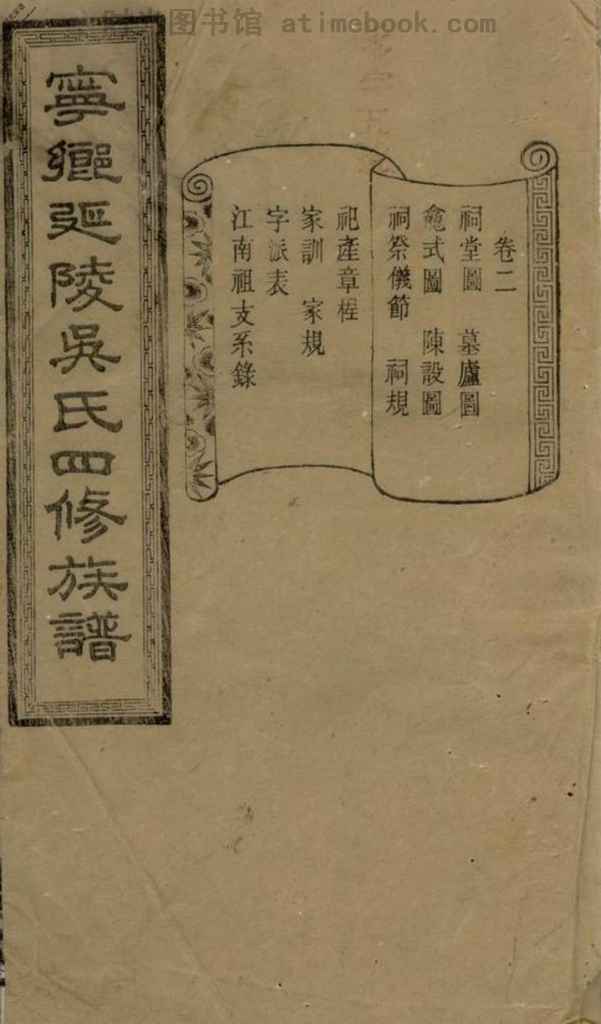 图书馆 atimebook.com
寧鄉延陵吳氏四修族譜
卷二
祠堂圖 墓廬圖
龕式圖 陳設圖
祠祭儀節 祠規
祀產章程
家訓 家規
字派表
江南祖支系錄